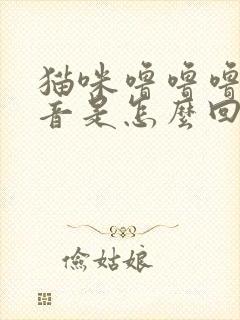 猫咪噜噜噜
音是怎麼回
俭姑娘